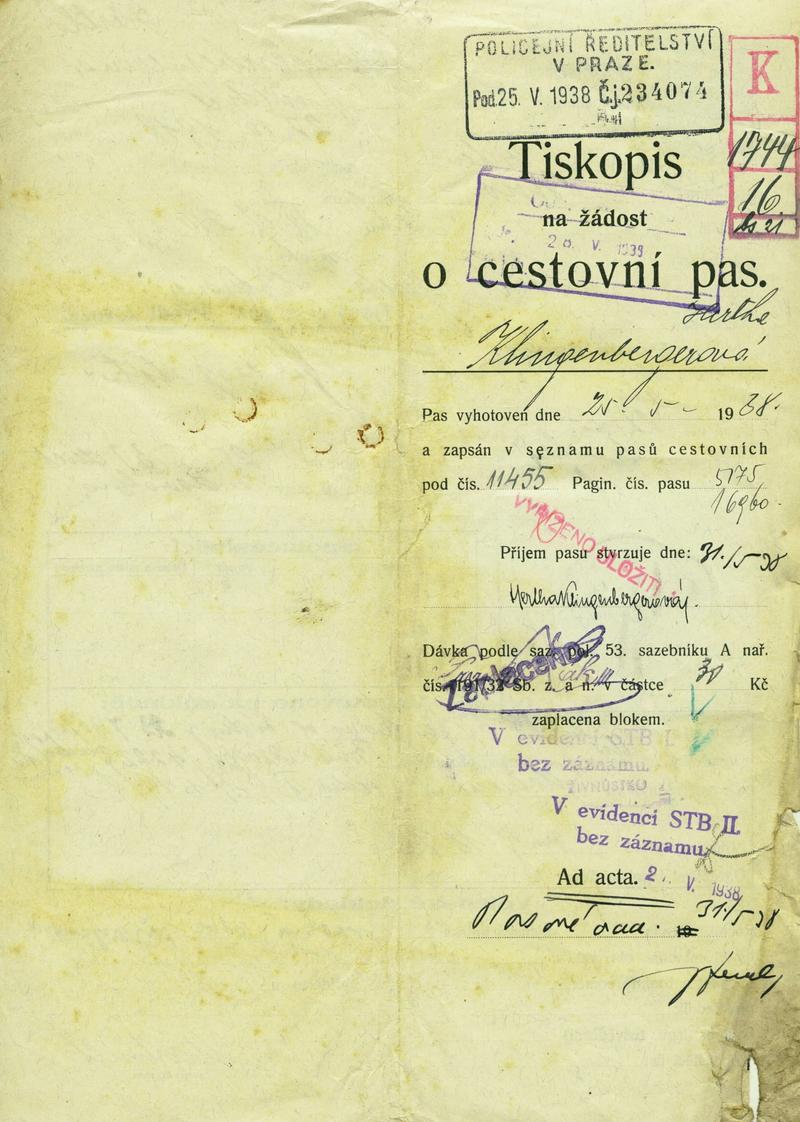 POLICEJNÍ ŘEDITELSTVÍ
V PRAZE.
Pod. 25. V. 1938 Č.j. 234074
K
1744
16
Tiskopis
na žádost
o cestovní pas.
Hertha
Klingenbergerová
Pas vyhotoven dne 25. 5 - 1938.
a zapsán v seznamu pasů cestovních
pod čís. 11455 Pagin. čís. pasu 5175
16960
VYŘÍZENO ULOŽITI
Příjem pasu stvrzuje dne: 31./5 38
Hertha Klingenbergerová
Dávka podle saz. pol. 53. sazebníku A nař.
Zaplaceno
čís. 191/32 Sb. z. a n. v částce 30 Kč
zaplacena blokem.
V evidenci STB I.
bez záznamu.
V evidenci STB II.
bez záznamu.
Ad acta. 2 . V. 1938
31./5 38